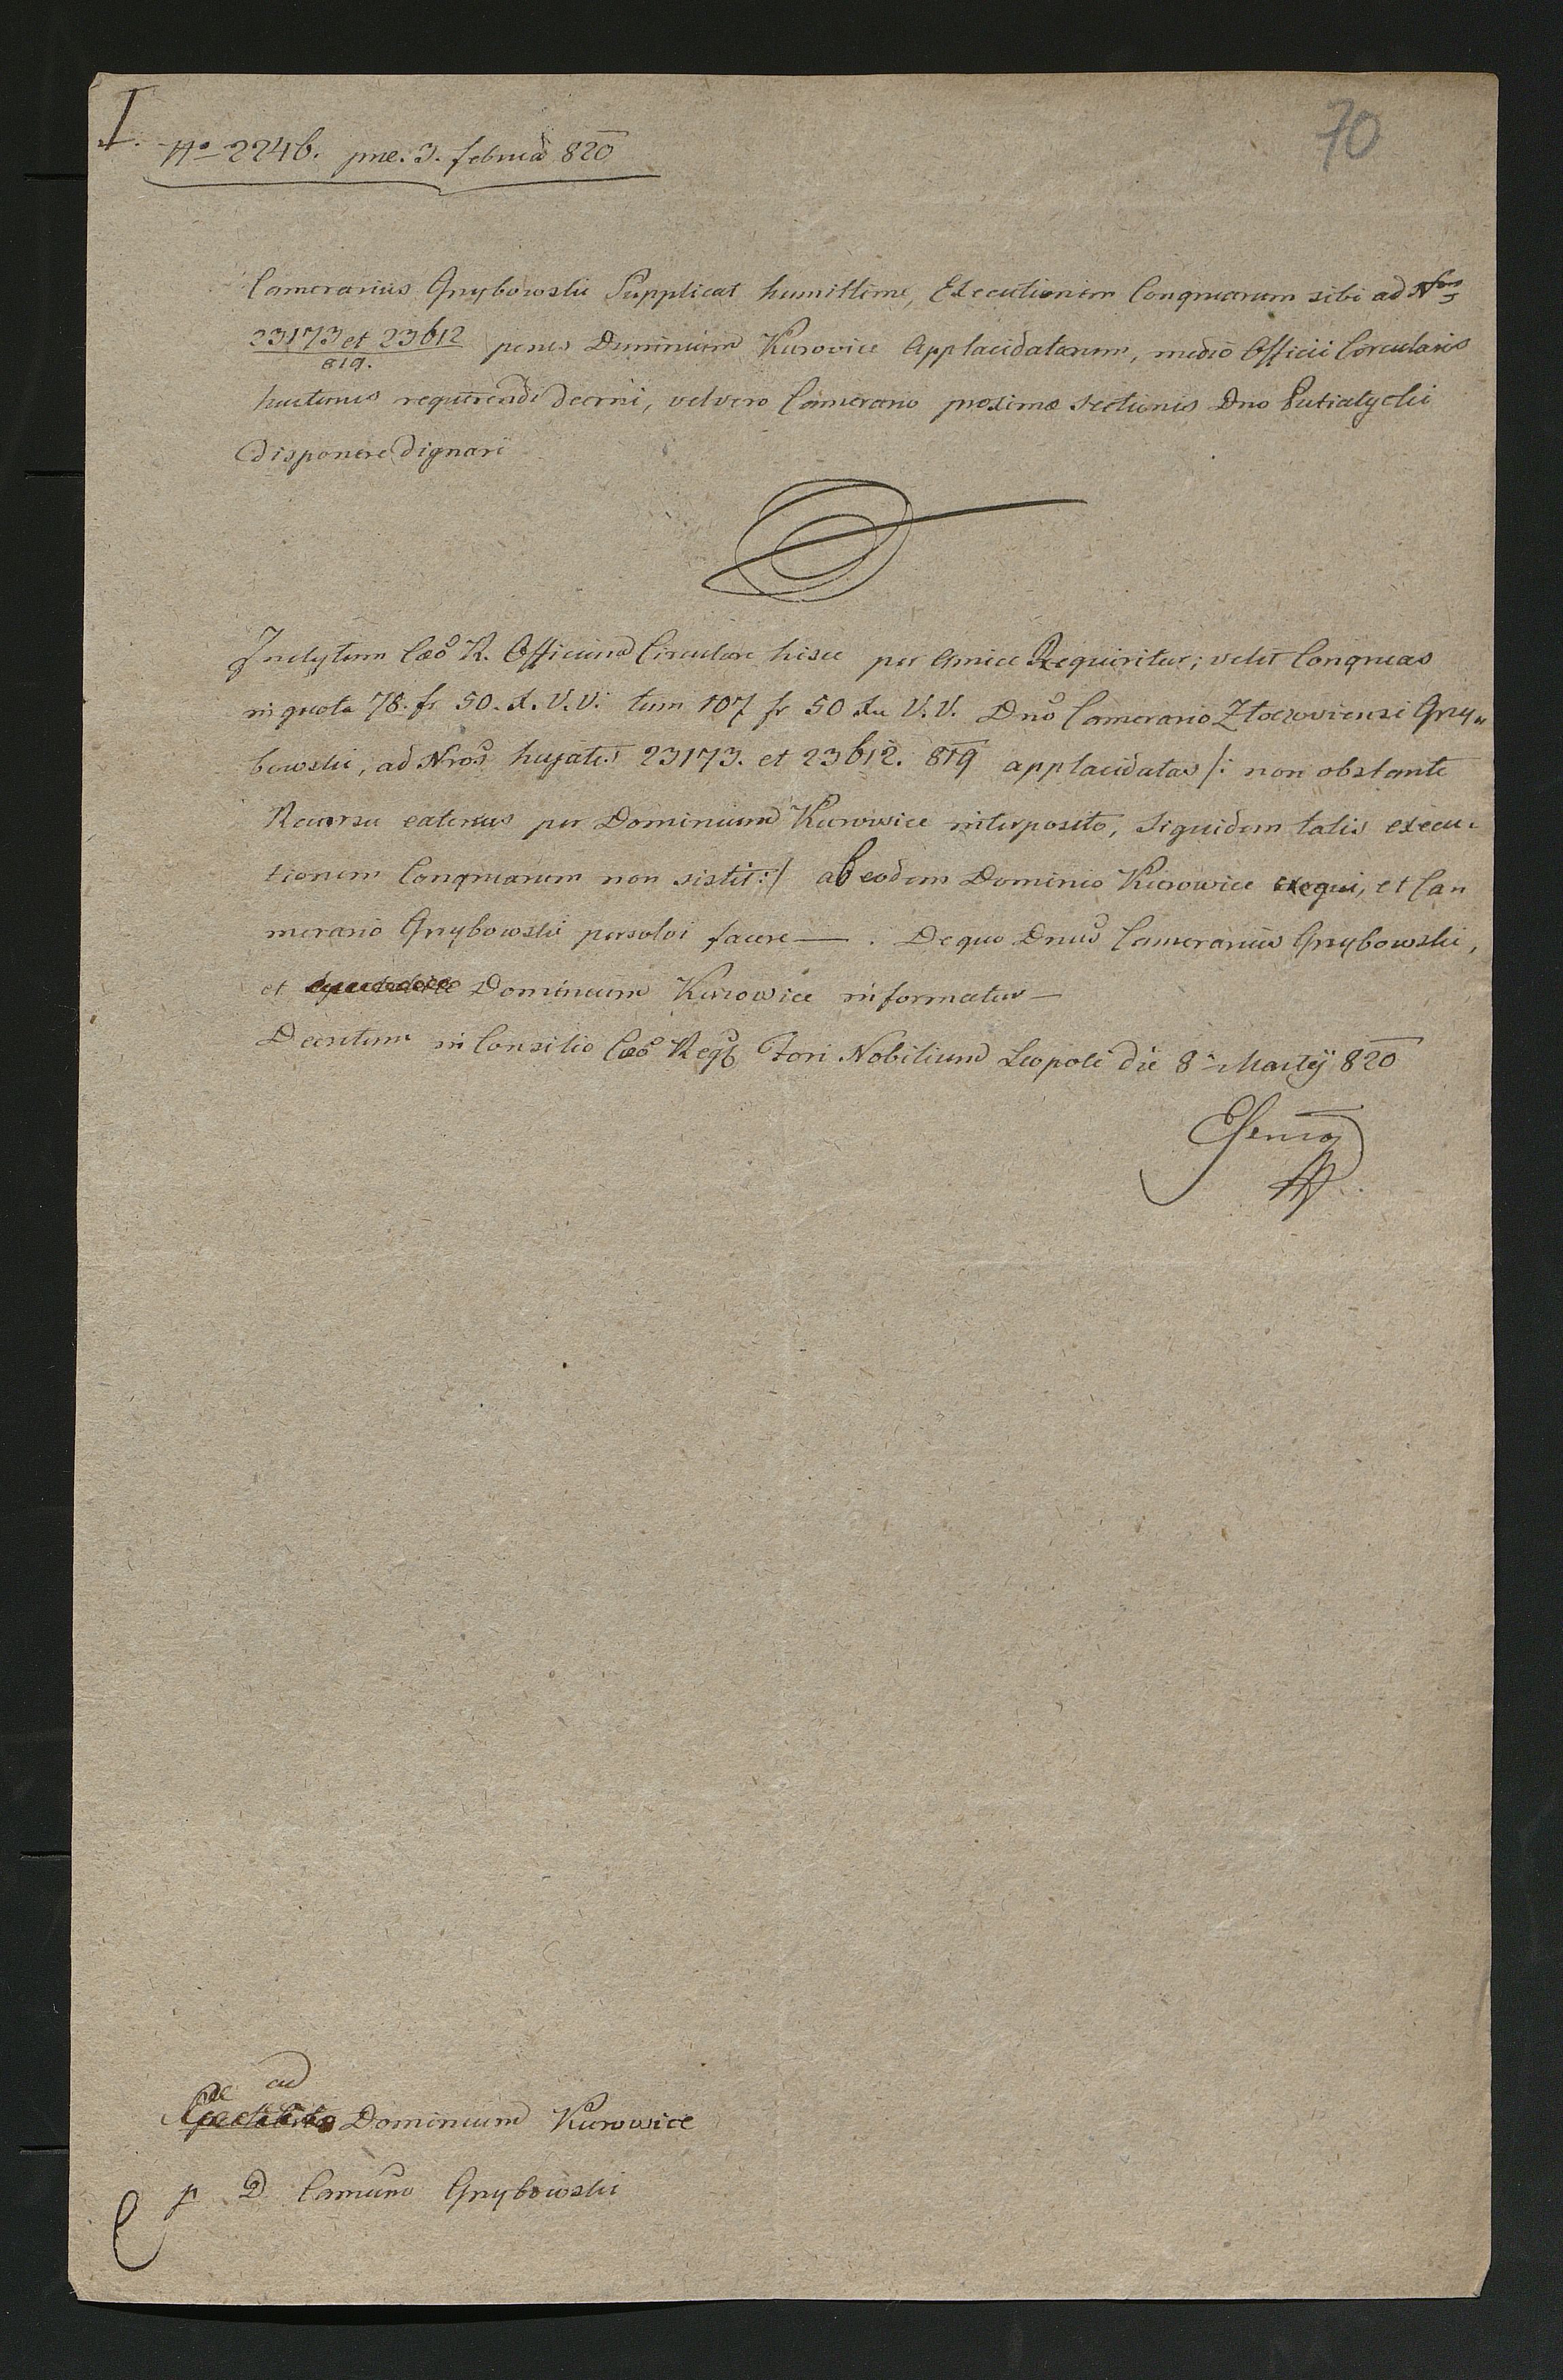 I.
70
No 2246. pne. 3. februa 820
Camerarius Grzybowski Supplicat humillime, Executionem Congruarum sibi ad Nros
23173 et 23612 penes Dominium Kurowice Applacidatarum, medio Officii Circularis
819.
hactenus requirendi decerni, vel vero Camerario proximae sectionis Dno
disponere dignari
Inclytum Caeo R. Officium Circulare hisce per amice Requiritur; velit Congruas
in quota 78. fr 50. x. V.V. tum 107 fr 50 xu V.V. Dno Camerario Złoczoviensi Grzy„
bowski, ad Nros hujates 23173. et 23612. 819 applacidatas /: non obstante
Recursu eatenus per Dominium Kurowice interposito, siquidem talis execu-
tionem Congruarum non sistit :/ ab eodem Dominio Kurowice exequi, et Ca„
merario Grzybowski persolvi facere — . De quo Dnus Camerarius Grzybowski,
et Dominium Kurowice informatur —
Decretum in Consilio Caeo Reg Fori Nobilium Leopoli die 8a Martij 820
ad
Dominium Kurowice
p D Camerario Grzybowski